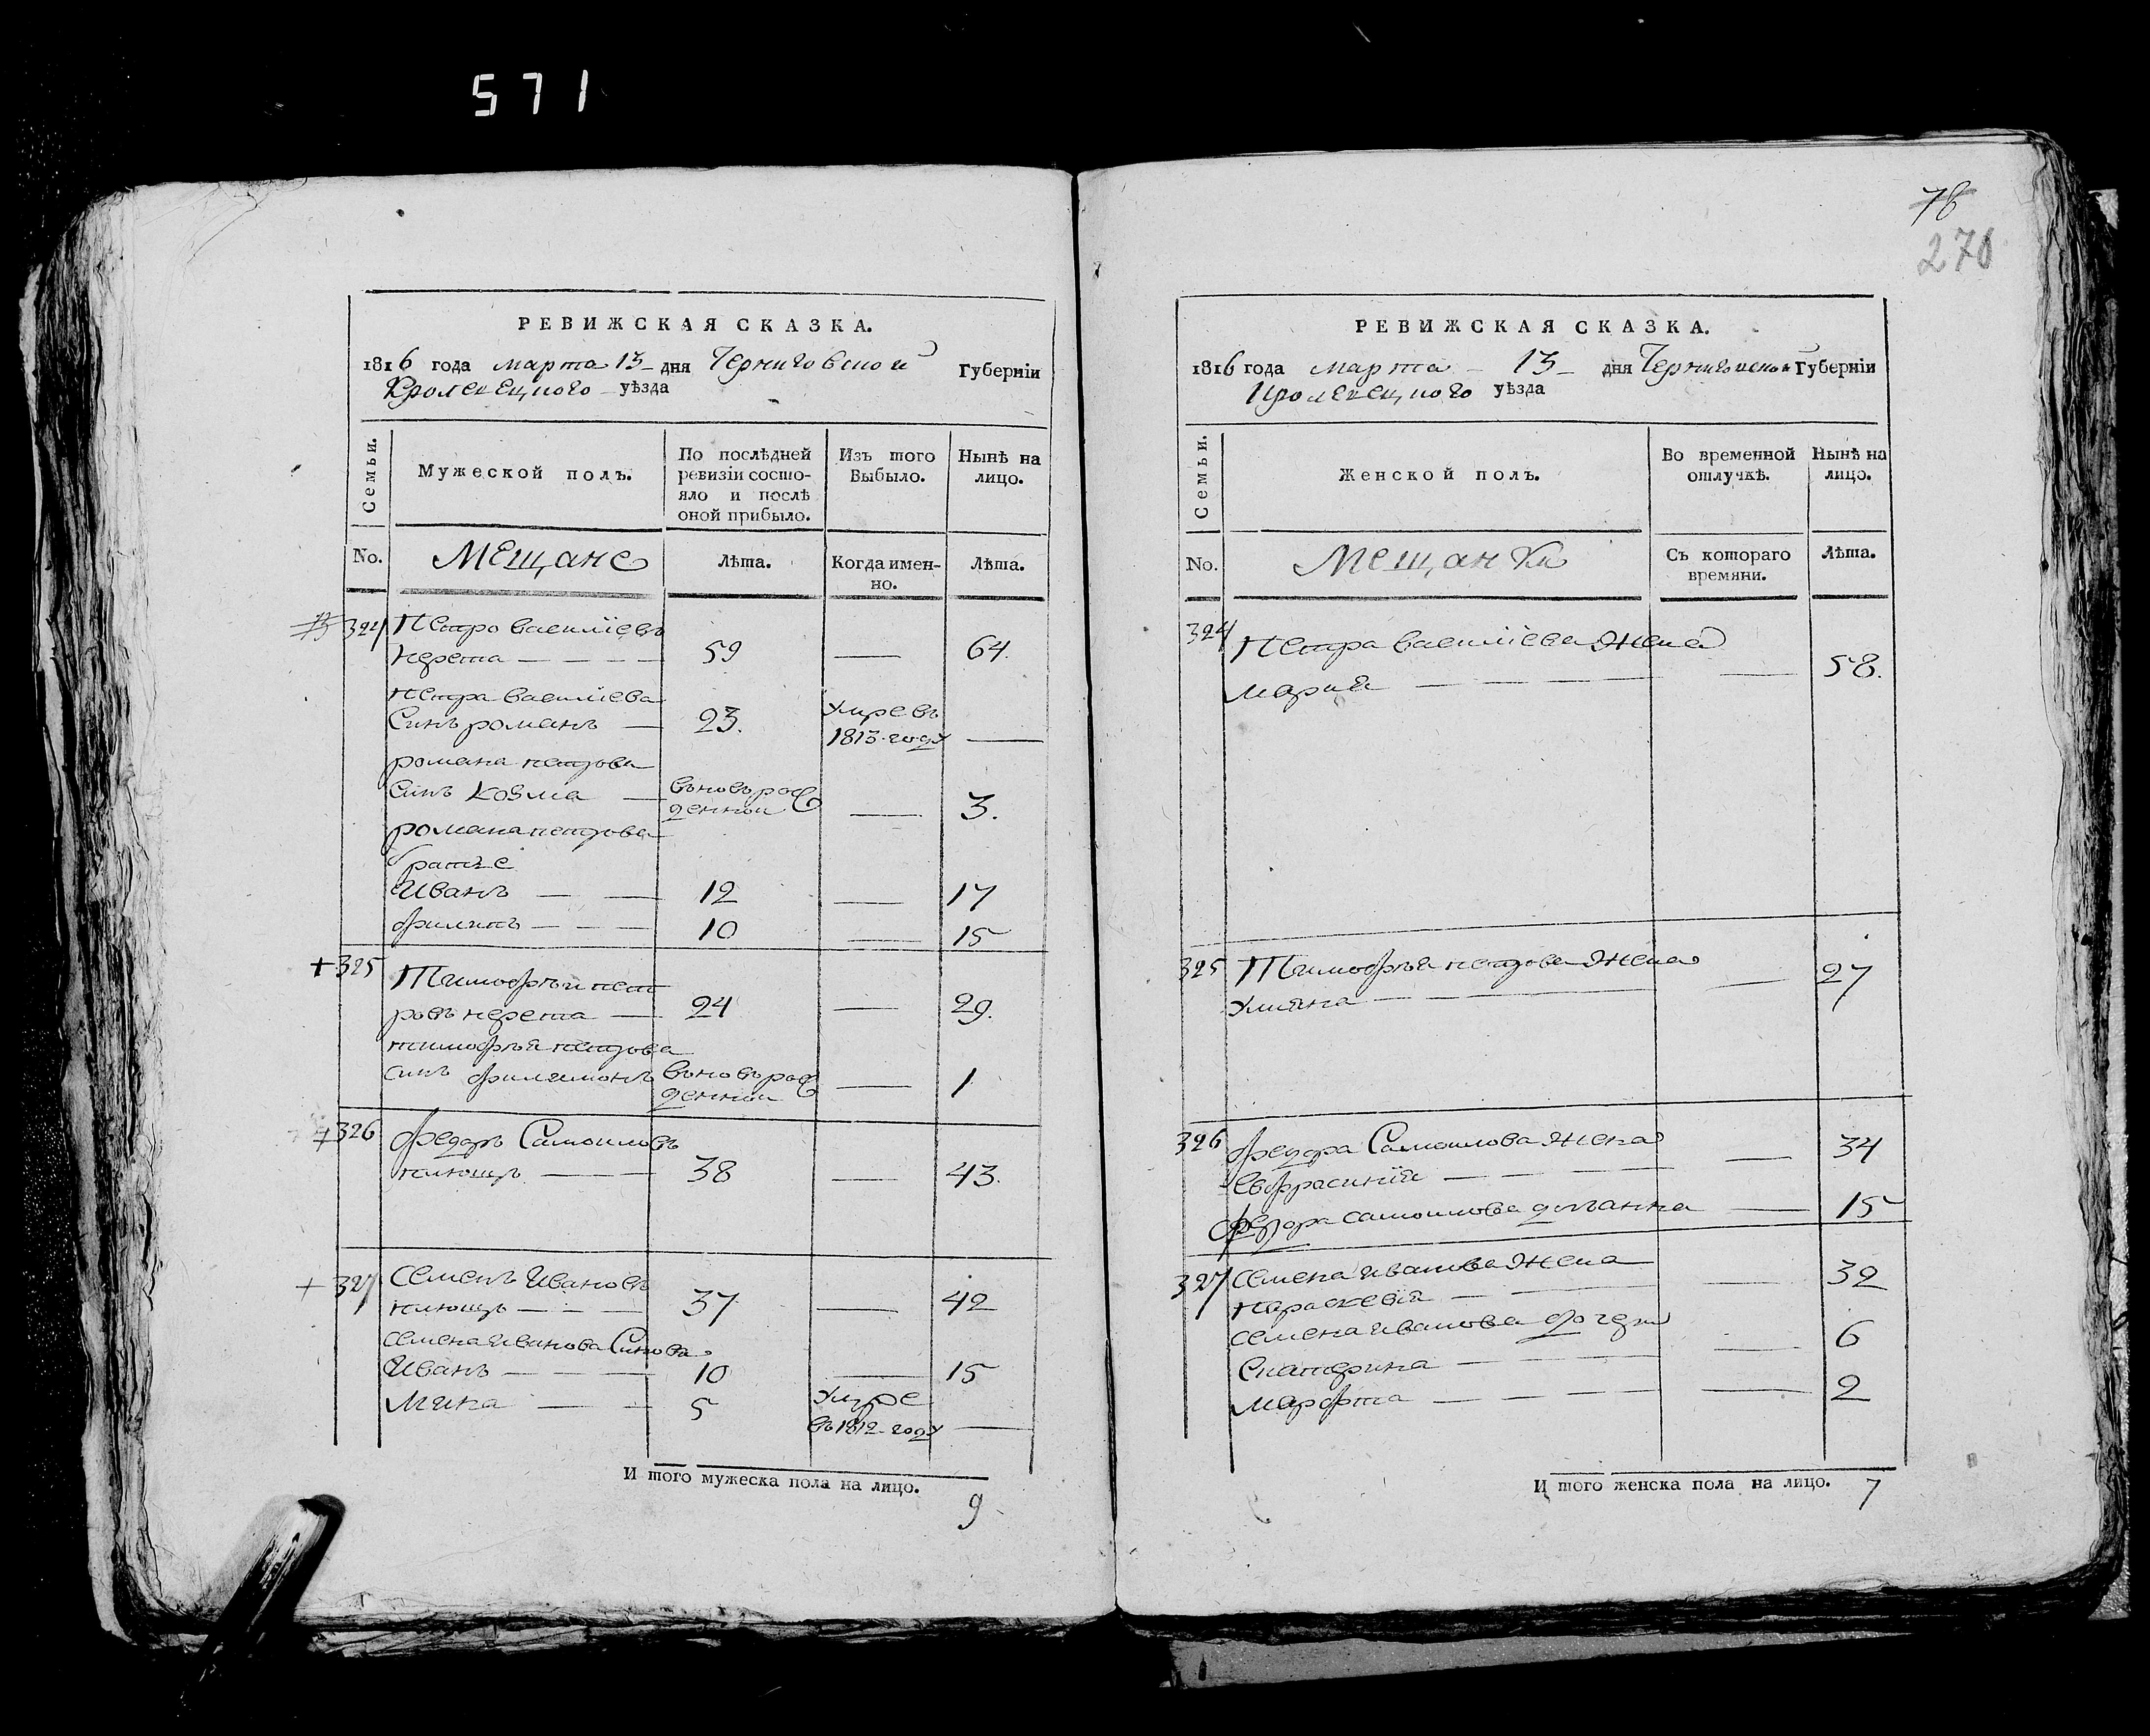 571
78
270
РЕВИЖСКАЯ СКАЗКА.
1816 года марта 13 дня Черниговской Губерніи
Кролевецкого уѣзда
Семьи.
Мужеской полъ.
По послѣдней ревизіи состояло и послѣ оной прибыло.
Изъ того Выбыло.
Нынѣ на лицо.
No.
Мещане
Лѣта.
Когда именно.
Лѣта.
324 Петро Василіевъ
59 — 64.
Петра Василіева
Синъ романъ — 23. Умре въ 1813 году —
романа петрова
Синъ козма — вьновь рожденной — 3.
романа петрова
братѣе
Иванъ — 12 — 17
Филипъ — 10 — 15
+ 325 Тимофѣй пет
ровъ — 24 — 29.
тимофѣя петрова
синъ Филимонъ вьновь рожденной — 1
326 Федоръ Самоиловъ
— 38 — 43.
+ 327 Семенъ Ивановъ
— 37 — 42
Семена Иванова Синова
Иванъ — 10 — 15
Мина — 5 Умре въ 1812 году —
И того мужеска пола на лицо.
9
РЕВИЖСКАЯ СКАЗКА.
1816 года марта 13 дня Черниговской Губерніи
Кролевецкого уѣзда
Семьи.
Женской полъ.
Во временной отлучкѣ.
Нынѣ на лицо.
No.
Мещанки
Съ котораго времяни.
Лѣта.
324 Петра Василіева Жена
Марія — — 58.
325 Тимофѣя петрова Жена
Уліяна — — 27
326 Федора Самоилова Жена
Евфрасинія — — 34
Федора самоилова дочь анна — 15
327 Семена иванова Жена
Параскевія — — 32
Семена иванова дочери
Екатерина — — 6
Марфта — — 2
И того женска пола на лицо. 7